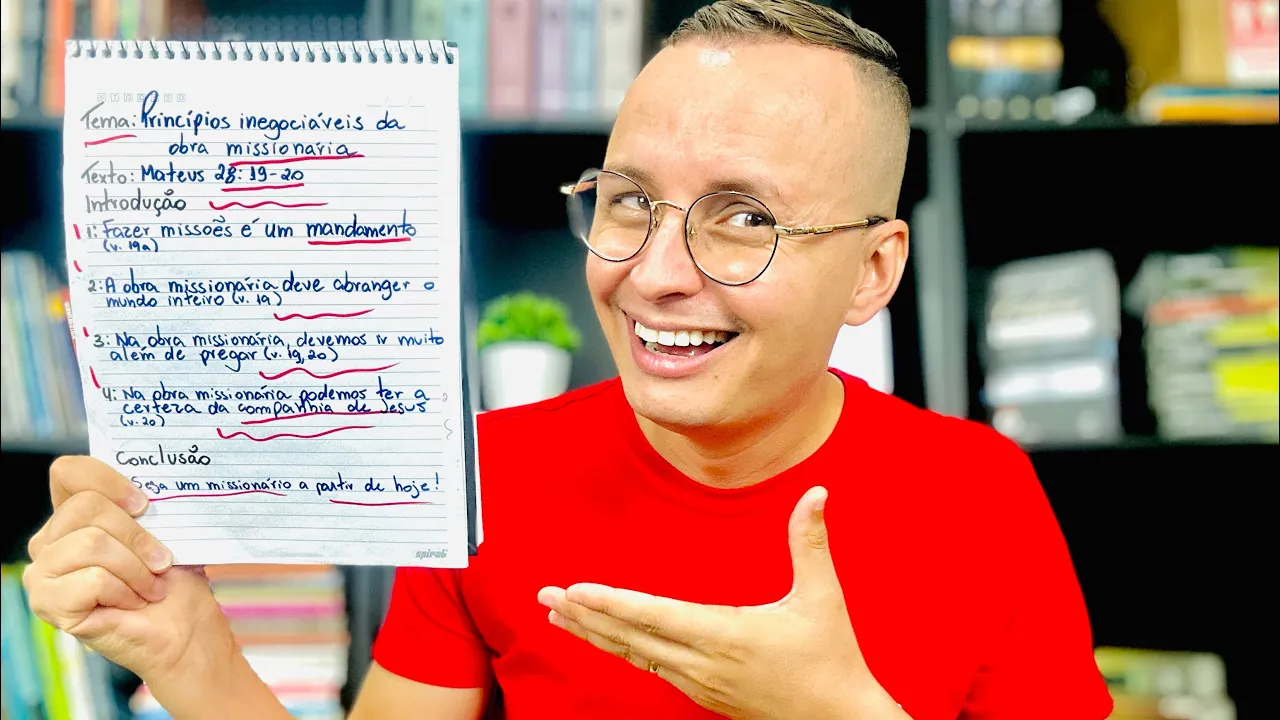 Tema: Princípios inegociáveis da
obra missionária
Texto: Mateus 28:19-20
Introdução
1: Fazer missões é um mandamento
(v. 19a)
2: A obra missionária deve abranger o
mundo inteiro (v. 19)
3: Na obra missionária, devemos ir muito
além de pregar (v. 19,20)
4: Na obra missionária podemos ter a
certeza da companhia de Jesus
(v. 20)
Conclusão
Seja um missionário a partir de hoje!
spiral